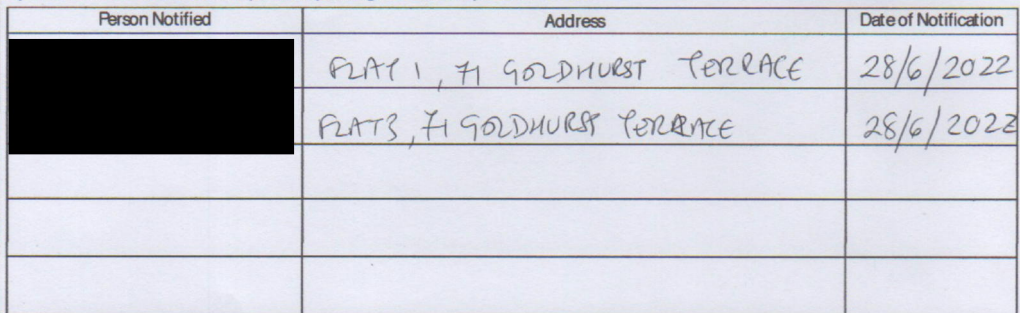 Person Notified Address Date of Notification
FLAT 1, 71 GOLDHURST TERRACE 28/6/2022
FLAT 3, 71 GOLDHURST TERRACE 28/6/2022